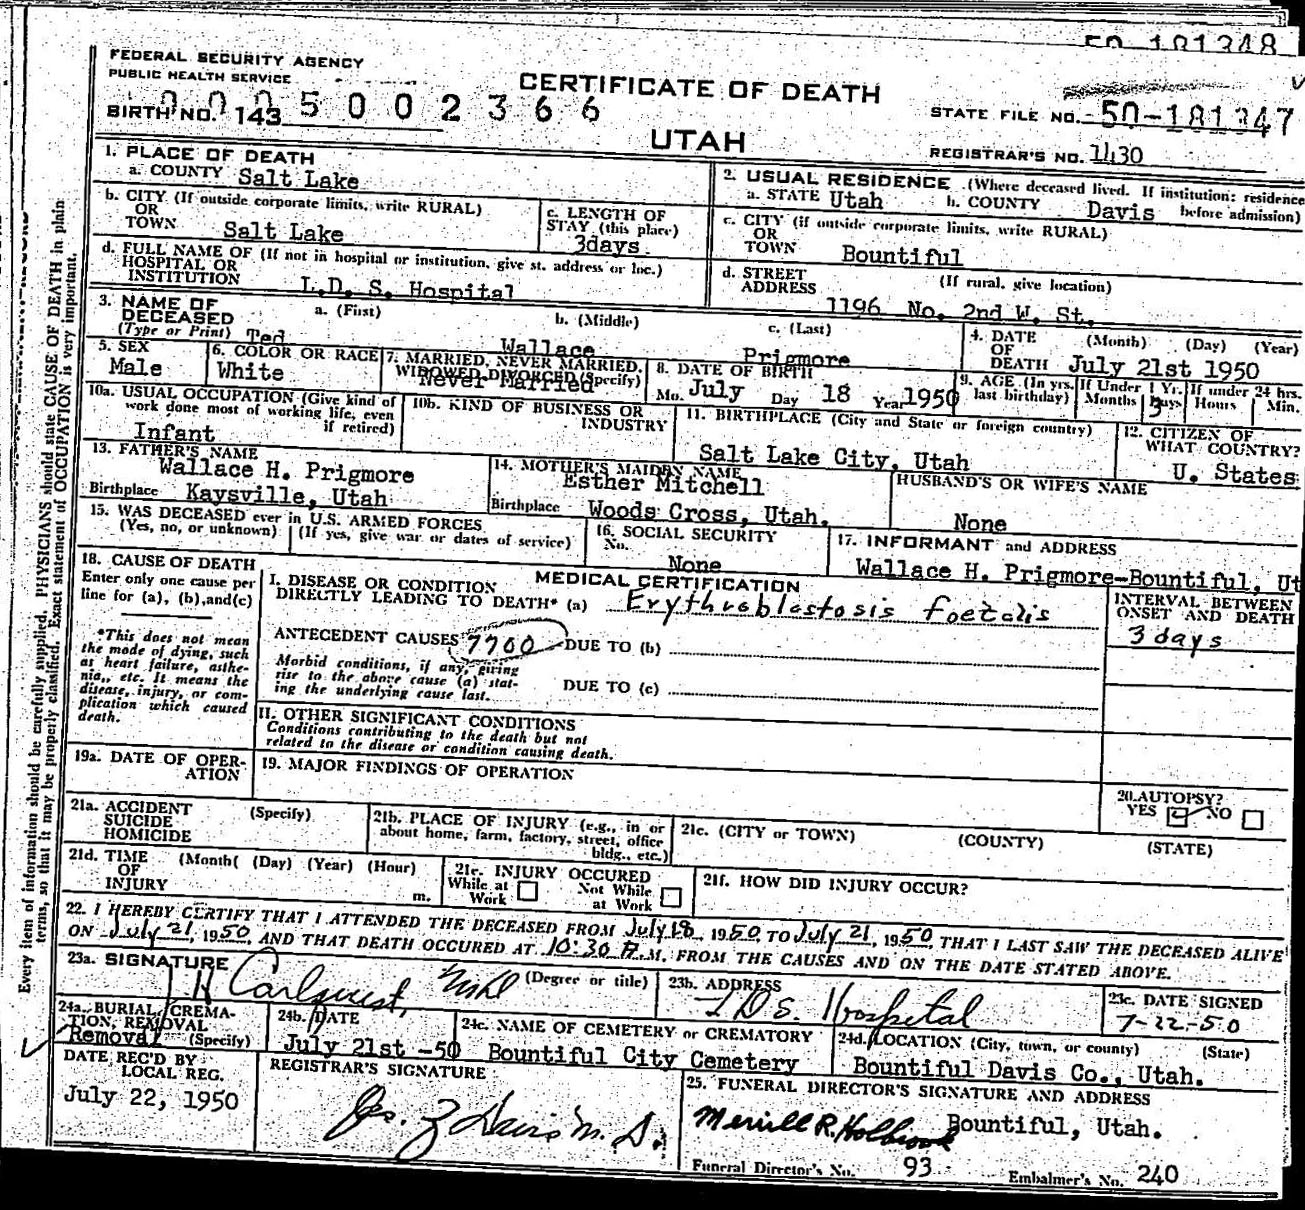 50-181348
FEDERAL SECURITY AGENCY
PUBLIC HEALTH SERVICE
CERTIFICATE OF DEATH
UTAH
0005002366
BIRTH NO. 143
STATE FILE NO. 50-181347
REGISTRAR'S NO. 1430
1. PLACE OF DEATH
a. COUNTY Salt Lake
b. CITY (If outside corporate limits, write RURAL)
OR
TOWN Salt Lake
c. LENGTH OF
STAY (this place)
3days
d. FULL NAME OF (If not in hospital or institution, give st. address or loc.)
HOSPITAL OR
INSTITUTION L.D. S. Hospital
2. USUAL RESIDENCE (Where deceased lived. If institution: residence
a. STATE Utah b. COUNTY Davis before admission)
c. CITY (if outside corporate limits, write RURAL)
OR
TOWN Bountiful
d. STREET (If rural, give location)
ADDRESS 1196 No. 2nd W. St.
3. NAME OF
DECEASED
(Type or Print)
a. (First) b. (Middle) c. (Last)
Ted Wallace Prigmore
4. DATE (Month) (Day) (Year)
OF
DEATH July 21st 1950
5. SEX
Male
6. COLOR OR RACE
White
7. MARRIED, NEVER MARRIED,
WIDOWED DIVORCED (Specify)
Never Married
8. DATE OF BIRTH
Mo. July Day 18 Year 1950
9. AGE (In yrs. last birthday)
If Under 1 Yr. Months Days 3
If under 24 hrs. Hours Min.
10a. USUAL OCCUPATION (Give kind of
work done most of working life, even
if retired)
Infant
10b. KIND OF BUSINESS OR
INDUSTRY
11. BIRTHPLACE (City and State or foreign country)
Salt Lake City, Utah
12. CITIZEN OF
WHAT COUNTRY?
U. States
13. FATHER'S NAME
Wallace H. Prigmore
Birthplace Kaysville, Utah
14. MOTHER'S MAIDEN NAME
Esther Mitchell
Birthplace Woods Cross, Utah.
HUSBAND'S OR WIFE'S NAME
None
15. WAS DECEASED ever in U.S. ARMED FORCES
(Yes, no, or unknown) (If yes, give war or dates of service)
16. SOCIAL SECURITY
No.
None
17. INFORMANT and ADDRESS
Wallace H. Prigmore-Bountiful, Ut
18. CAUSE OF DEATH
Enter only one cause per
line for (a), (b), and (c)
*This does not mean
the mode of dying, such
as heart failure, asthe-
nia,, etc. It means the
disease, injury, or com-
plication which caused
death.
MEDICAL CERTIFICATION
I. DISEASE OR CONDITION
DIRECTLY LEADING TO DEATH* (a) Erythroblastosis foetalis
ANTECEDENT CAUSES 7700 DUE TO (b)
Morbid conditions, if any, giving
rise to the above cause (a) stat-
ing the underlying cause last.
DUE TO (c)
II. OTHER SIGNIFICANT CONDITIONS
Conditions contributing to the death but not
related to the disease or condition causing death.
INTERVAL BETWEEN
ONSET AND DEATH
3 days
19a. DATE OF OPER-
ATION
19. MAJOR FINDINGS OF OPERATION
20. AUTOPSY?
YES NO
21a. ACCIDENT (Specify)
SUICIDE
HOMICIDE
21b. PLACE OF INJURY (e.g., in or
about home, farm, factory, street, office
bldg., etc.)
21c. (CITY or TOWN) (COUNTY) (STATE)
21d. TIME (Month( (Day) (Year) (Hour)
OF
INJURY m.
21e. INJURY OCCURED
While at Work Not While at Work
21f. HOW DID INJURY OCCUR?
22. I HEREBY CERTIFY THAT I ATTENDED THE DECEASED FROM July 18, 1950 TO July 21, 1950, THAT I LAST SAW THE DECEASED ALIVE
ON July 21, 1950, AND THAT DEATH OCCURED AT 10:30 P.M. FROM THE CAUSES AND ON THE DATE STATED ABOVE.
23a. SIGNATURE (Degree or title)
H Carlquist,
23b. ADDRESS
LDS Hospital
23c. DATE SIGNED
7-22-50
24a. BURIAL, CREMA-
TION, REMOVAL
(Specify)
Removal
24b. DATE
July 21st -50
24c. NAME OF CEMETERY or CREMATORY
Bountiful City Cemetery
24d. LOCATION (City, town, or county) (State)
Bountiful Davis Co., Utah.
DATE REC'D BY
LOCAL REG.
July 22, 1950
REGISTRAR'S SIGNATURE
Jos. Z Davis M. D.
25. FUNERAL DIRECTOR'S SIGNATURE AND ADDRESS
Merrill R. Holbrook Bountiful, Utah.
Funeral Director's No. 93 Embalmer's No. 240
Every item of information should be carefully supplied. PHYSICIANS should state CAUSE OF DEATH in plain
terms, so that it may be properly classified. Exact statement of OCCUPATION is very important.